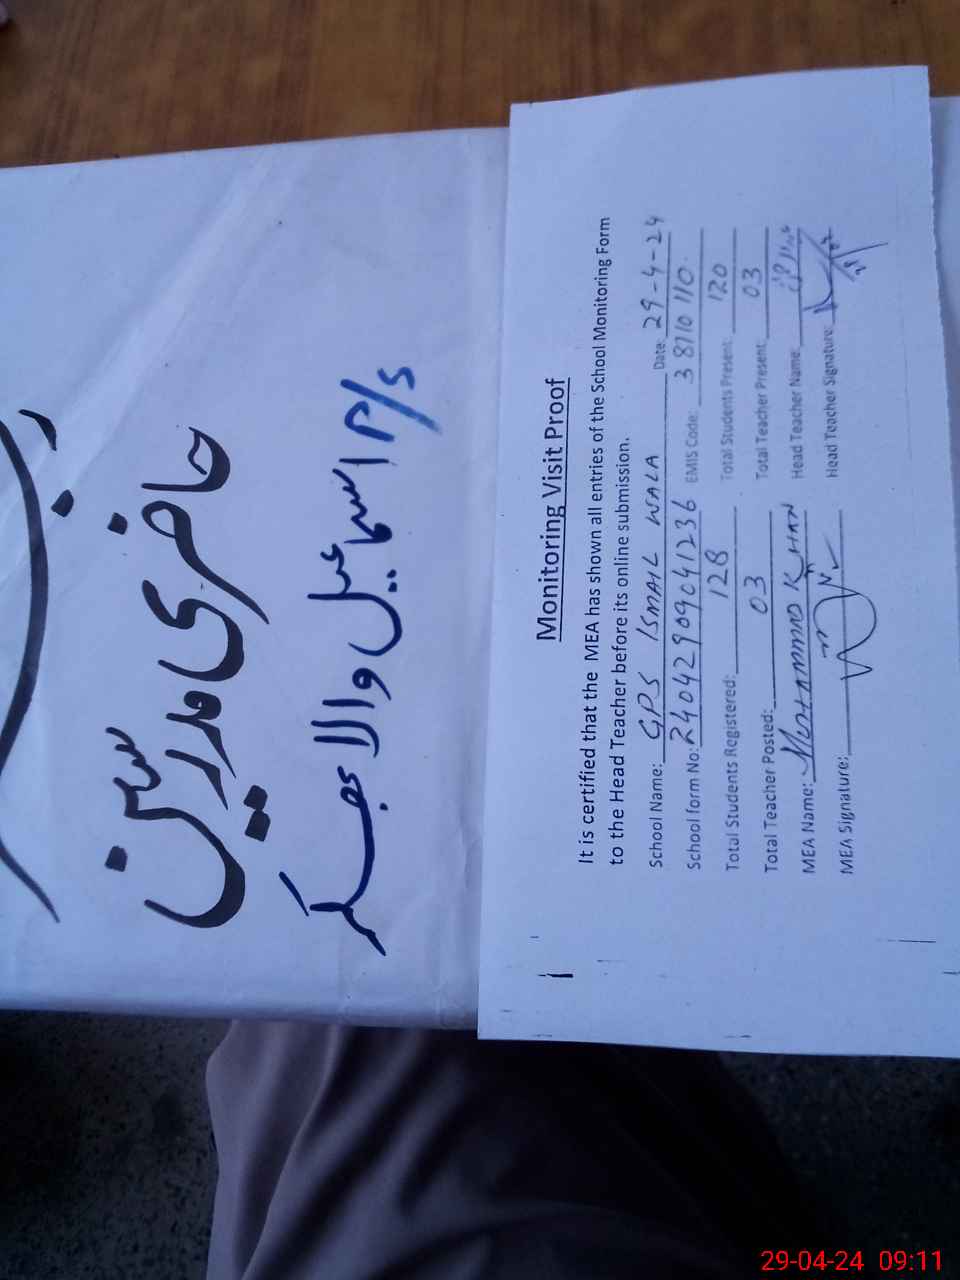 حاضری مدرسین
P/S اسماعیل والا بھکر
Monitoring Visit Proof
It is certified that the MEA has shown all entries of the School Monitoring Form
to the Head Teacher before its online submission.
School Name: GPS ISMAIL WALA Date: 29-4-24
School form No: 24042909041236 EMIS Code: 38110110
Total Students Registered: 128 Total Students Present: 120
Total Teacher Posted: 03 Total Teacher Present: 03
MEA Name: MUHAMMAD KHAN Head Teacher Name:
MEA Signature: Head Teacher Signature:
29-04-24 09:11